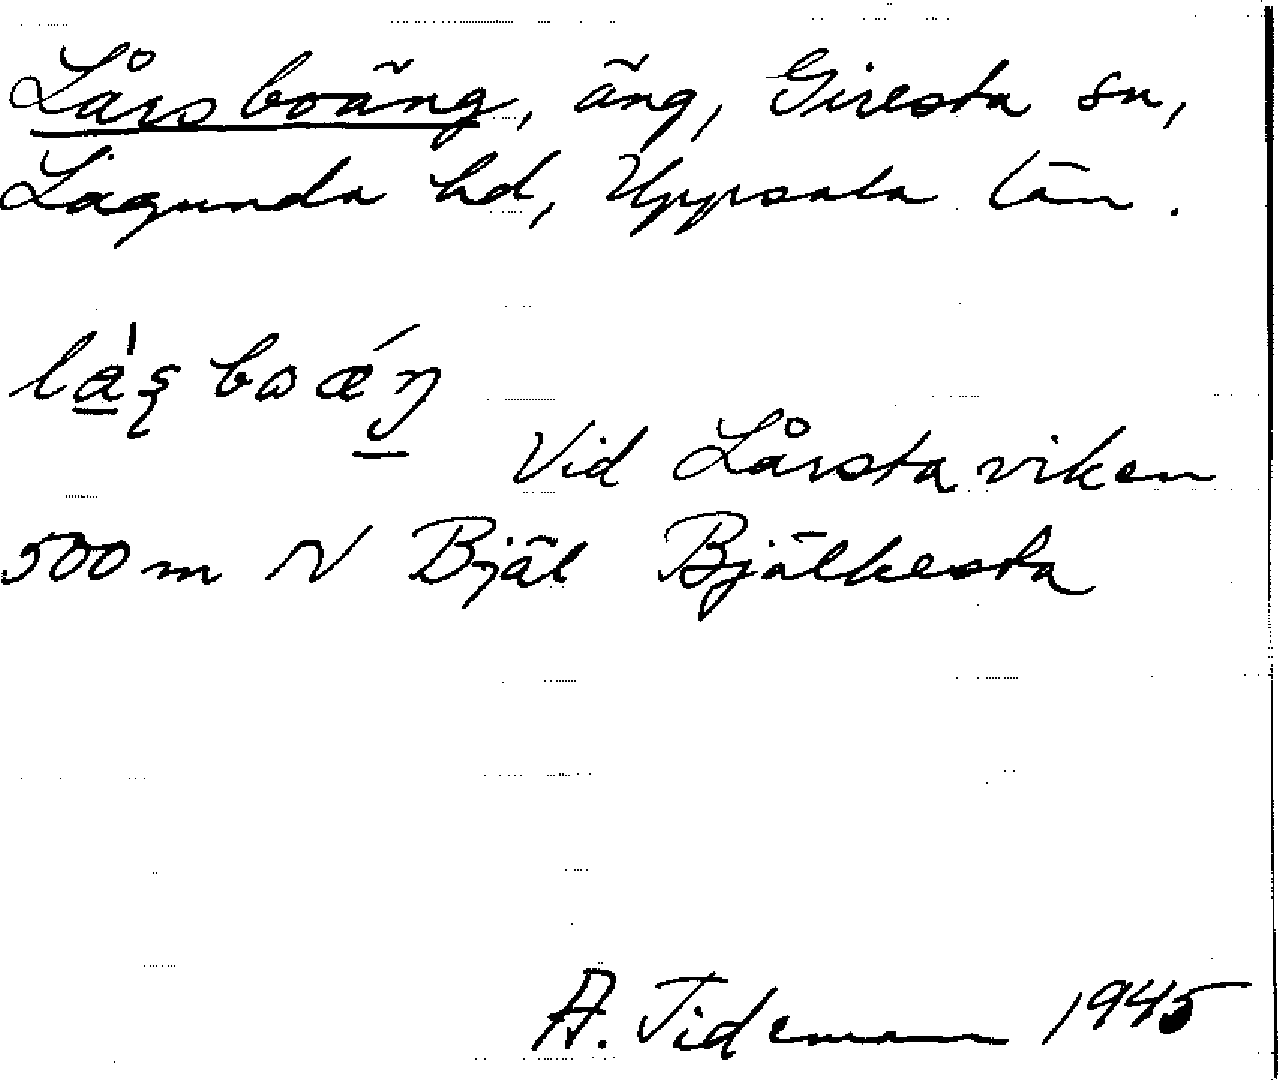 Lårsboäng, äng, Giresta sn,
Lagunda hd, Uppsala län.
Vid Lårstaviken
500 m N Bjäl Bjälkesta
A. Tideman 1945